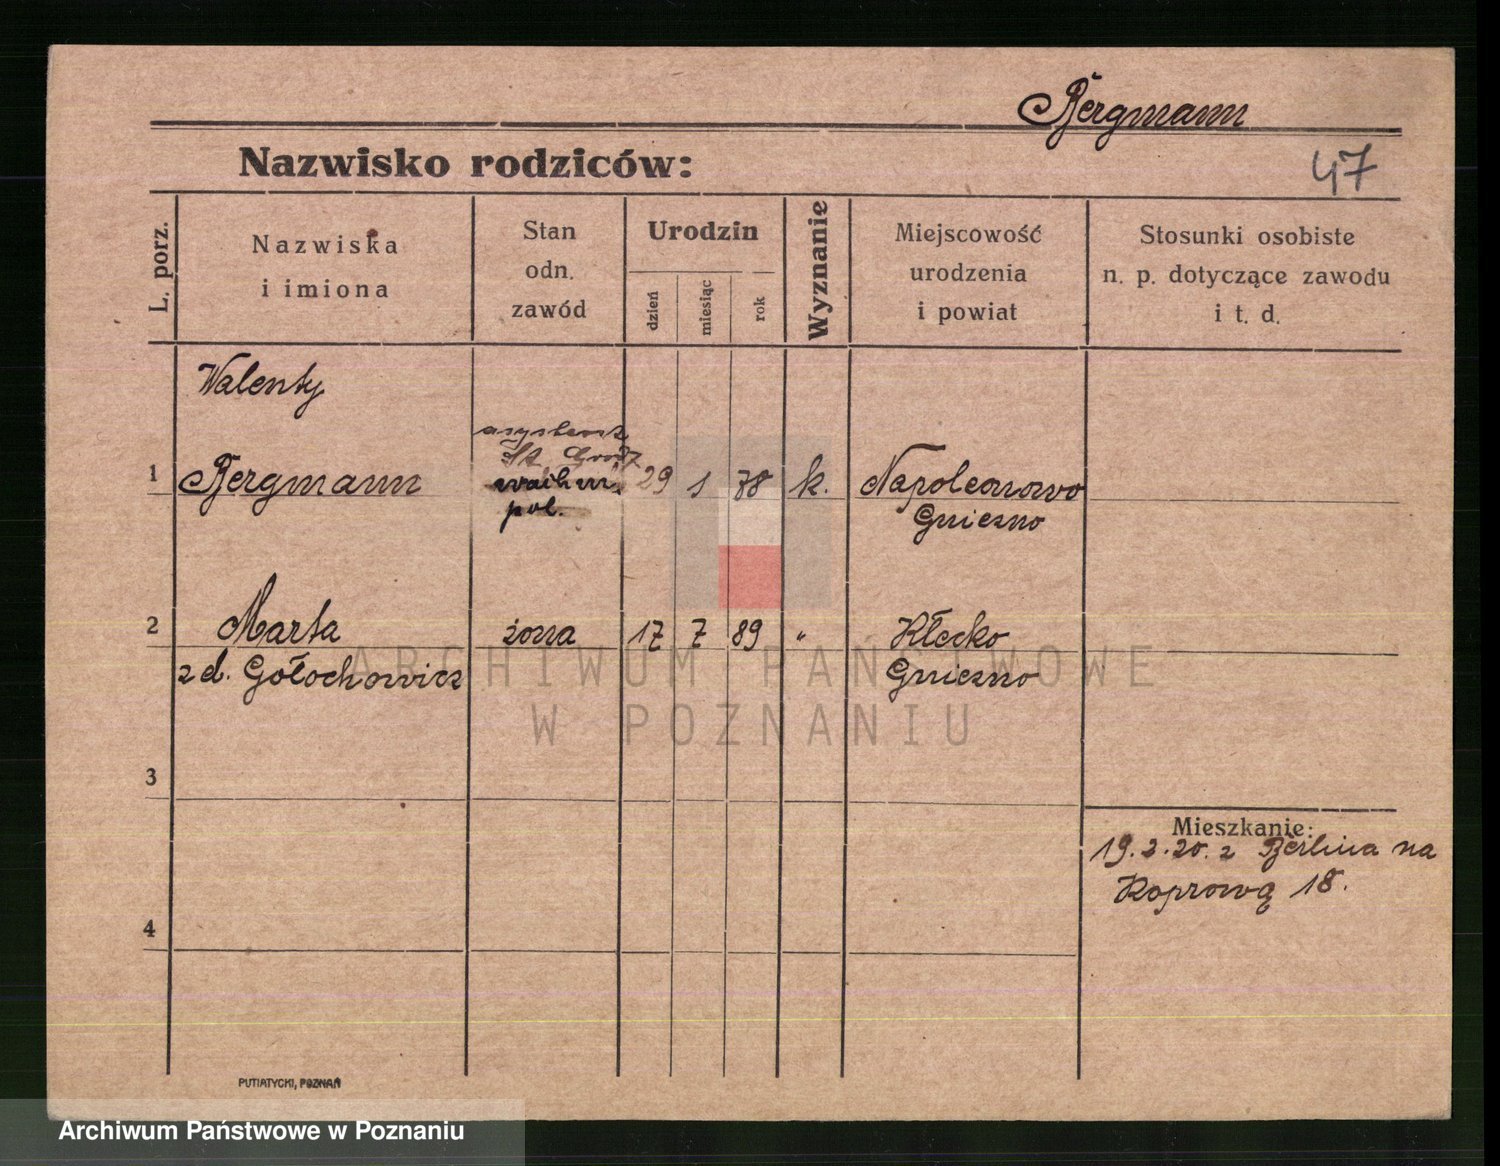 Bergmann
47
Nazwisko rodziców:
L. porz.
Nazwiska
i imiona
Stan
odn.
zawód
Urodzin
dzień
miesiąc
rok
Wyznanie
Miejscowość
urodzenia
i powiat
Stosunki osobiste
n. p. dotyczące zawodu
i t. d.
Walenty
asystent
St. Grodz
1 Bergmann wachm. 29 1 78 k. Napoleonowo
pol. Gniezno
2 Marta żona 17 7 89 " Kłecko
z d. Gołochowicz Gniezno
ARCHIWUM PAŃSTWOWE
W POZNANIU
3
Mieszkanie:
19.2.20. z Berlina na
Koprową 18.
4
PUTIATYCKI, POZNAŃ
Archiwum Państwowe w Poznaniu